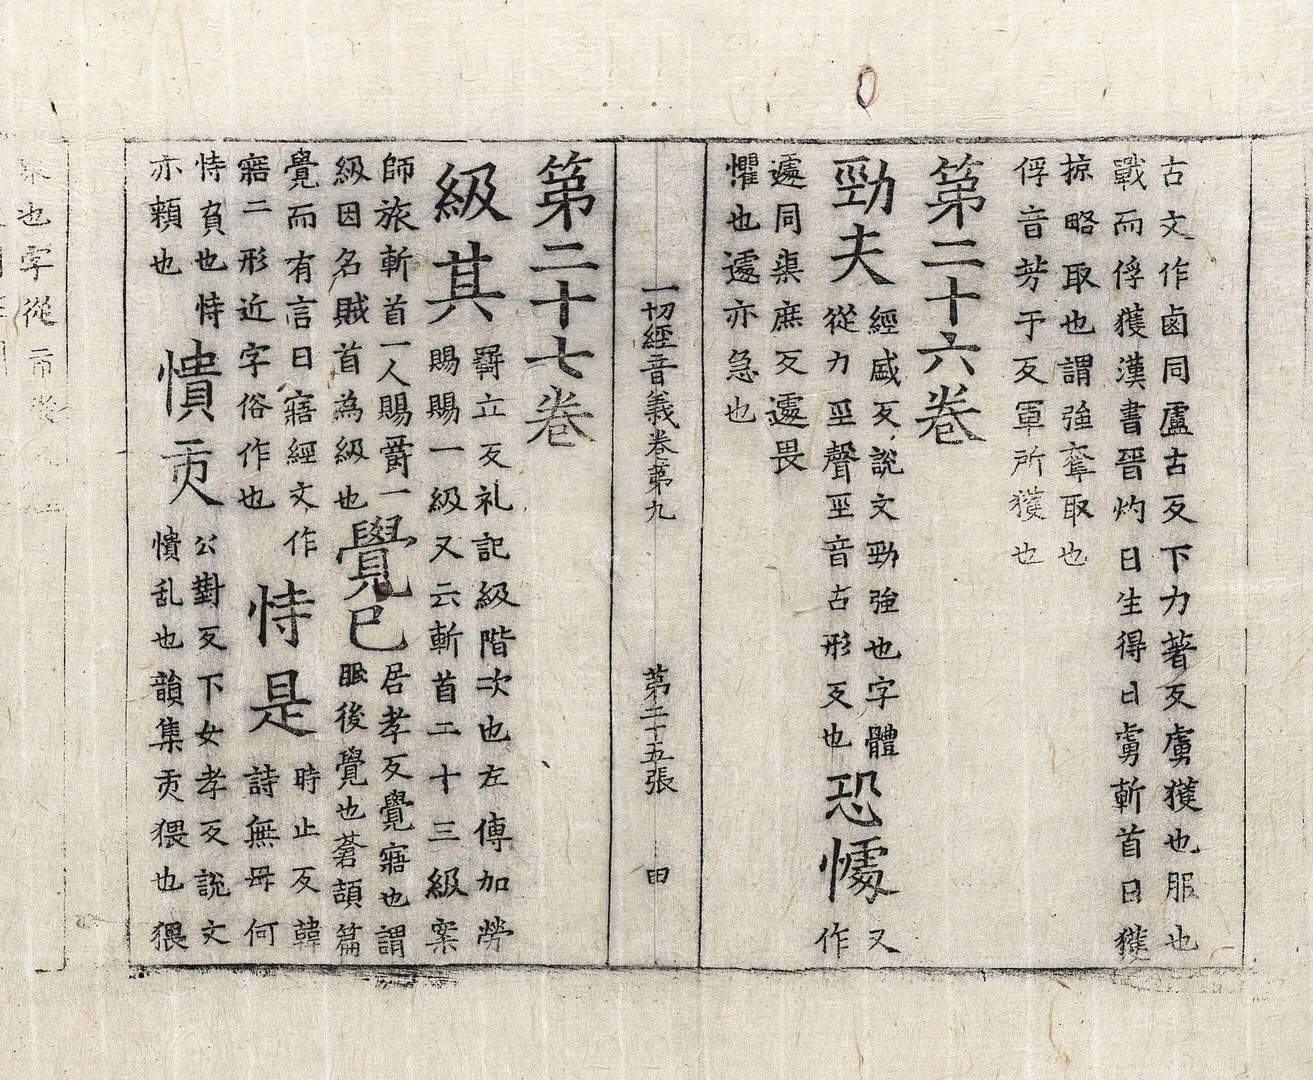 古文作鹵同盧古反下力著反虜獲也服也
戰而俘獲漢書晉灼曰生得曰虜斬首曰獲
掠略取也謂強奪取也
俘音芳于反軍所獲也
第二十六卷
勁夫
經盛反說文勁強也字體
從力巠聲巠音古形反也
恐懅
又作
遽同渠庶反遽畏
懼也遽亦急也
一切經音義卷第九
第二十五張
田
第二十七卷
級其
羇立反礼記級階次也左傳加勞
賜賜一級又云斬首二十三級案
師旅斬首一人賜爵一
級因名賊首為級也
覺已
居孝反覺寤也謂
眠後覺也蒼頡篇
覺而有言曰寤經文作
寤二形近字俗作也
恃是
時止反韓
詩無母何
恃負也恃
亦賴也
憒丙
公對反下女孝反說文
憒乱也韻集丙猥也猥
也字從